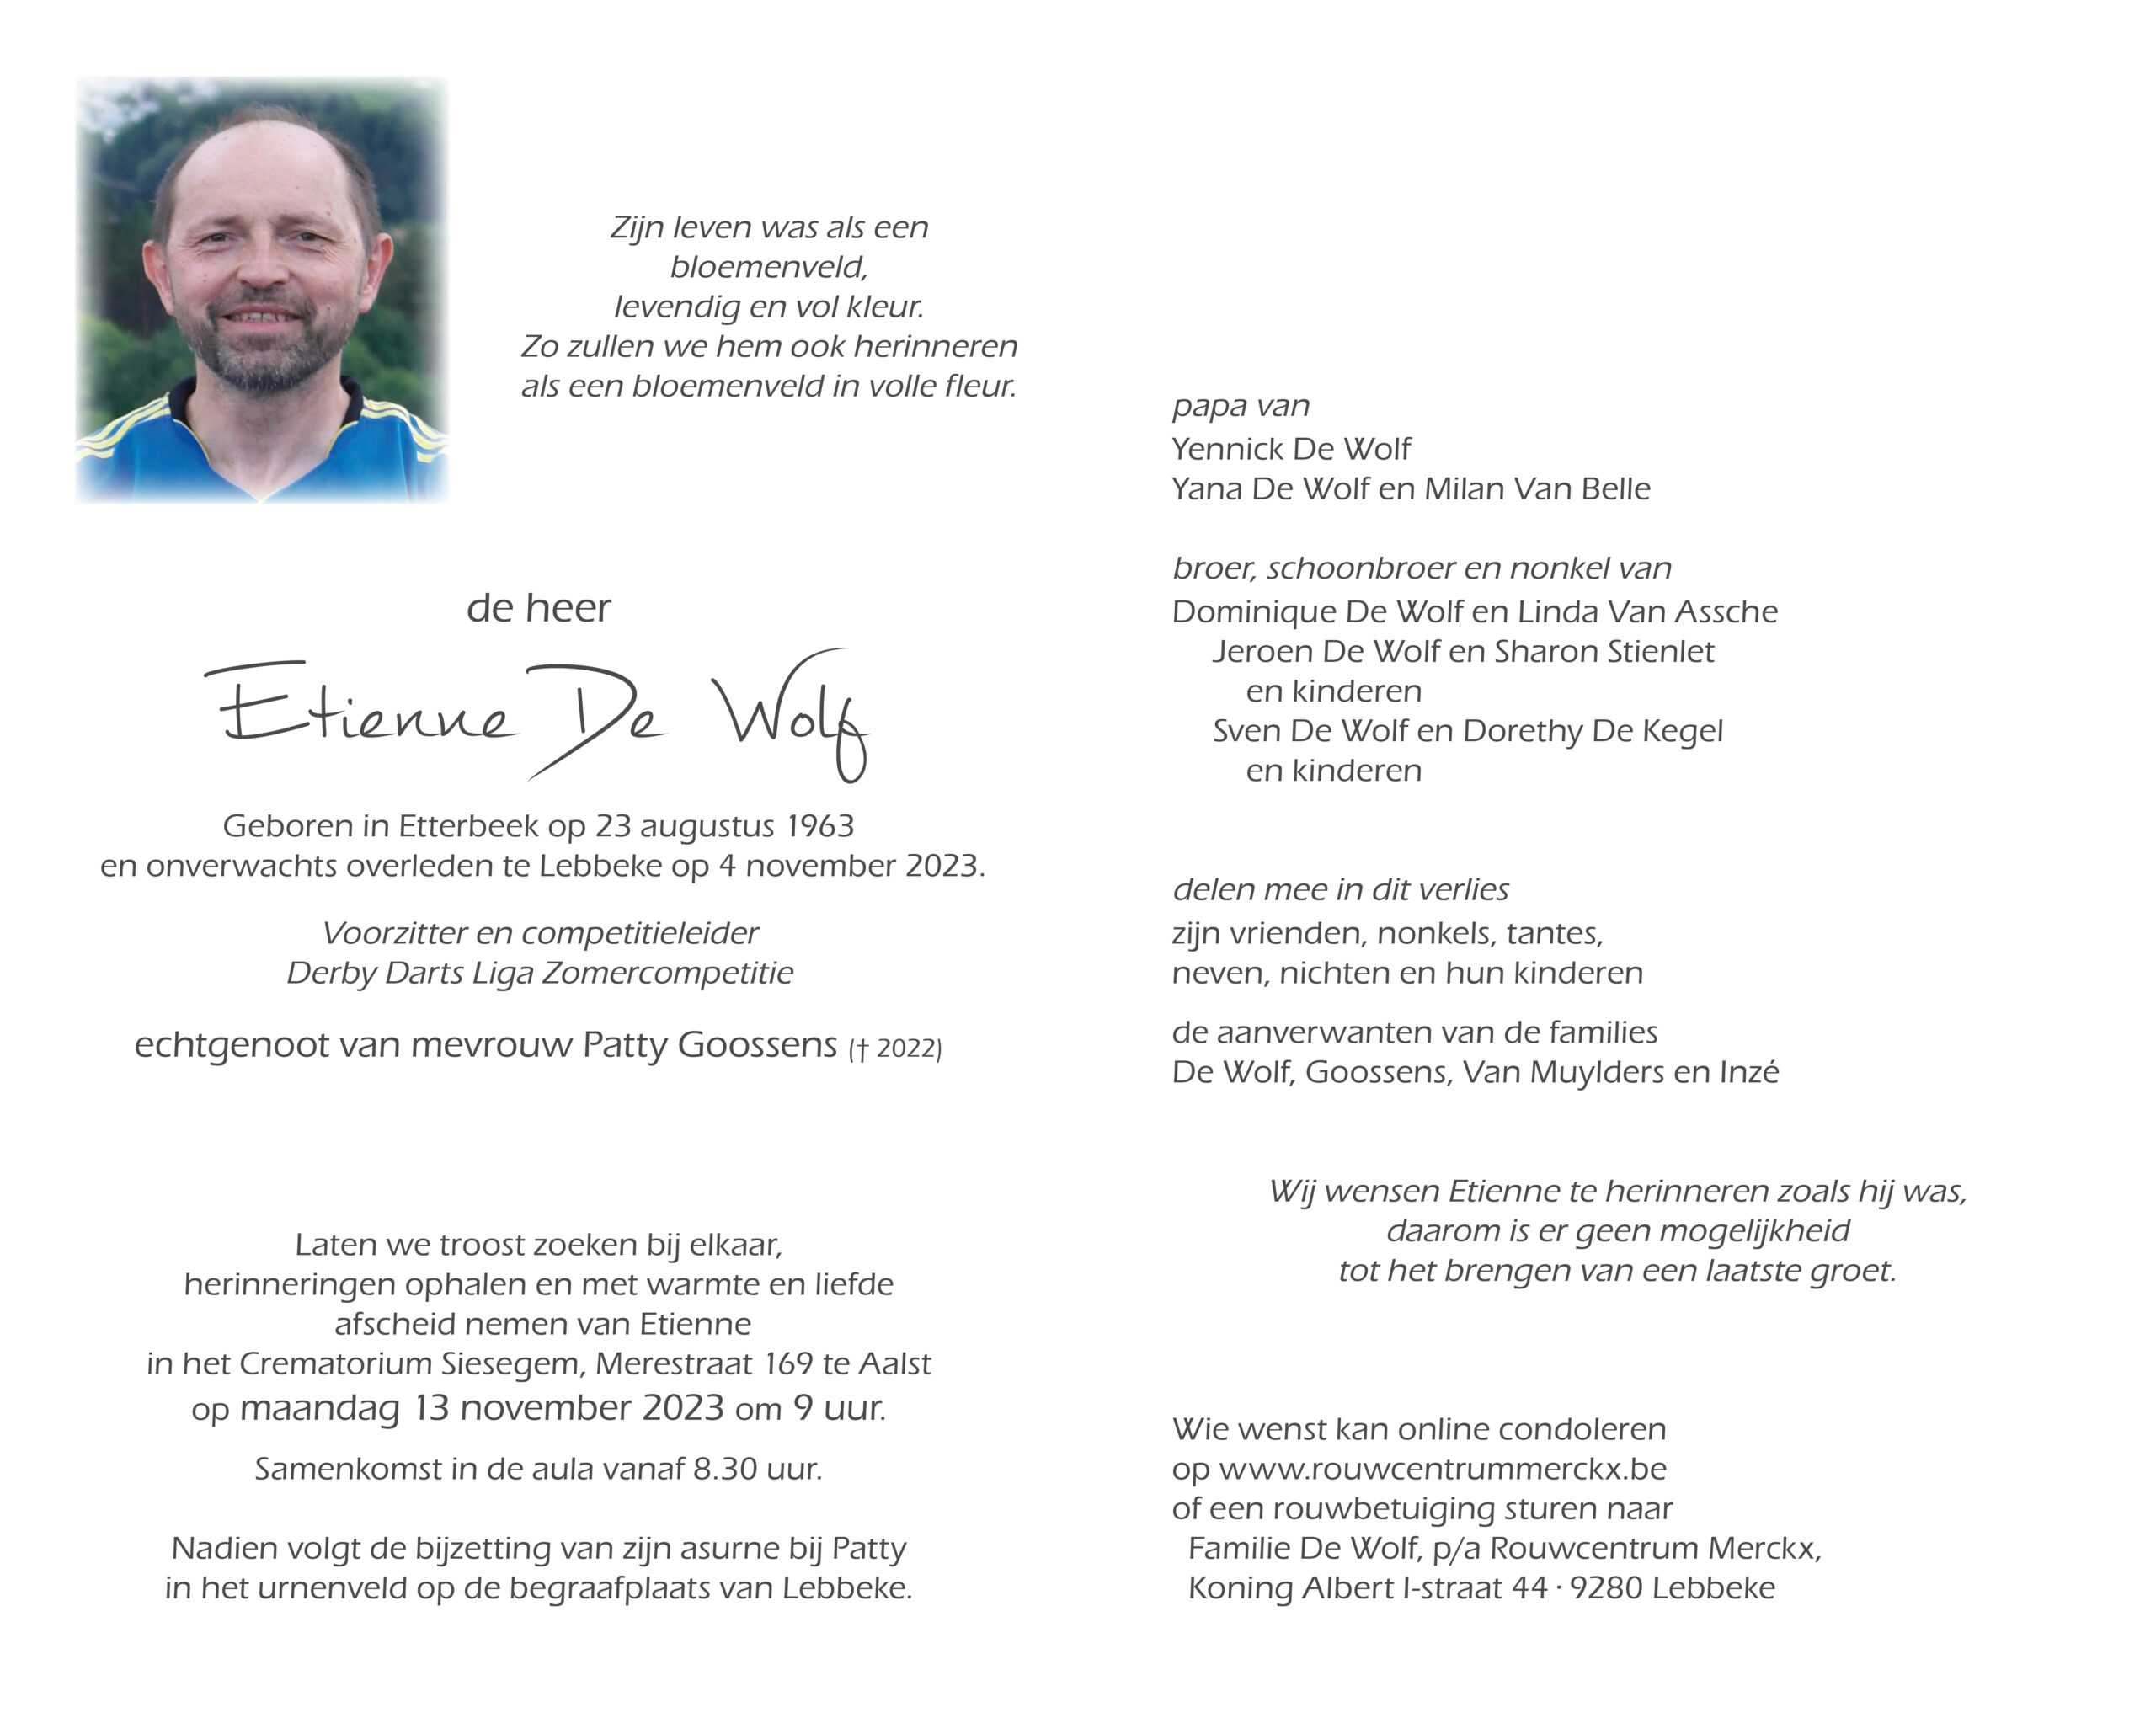 Zijn leven was als een
bloemenveld,
levendig en vol kleur.
Zo zullen we hem ook herinneren
als een bloemenveld in volle fleur.
de heer
Etienne De Wolf
Geboren in Etterbeek op 23 augustus 1963
en onverwachts overleden te Lebbeke op 4 november 2023.
Voorzitter en competitieleider
Derby Darts Liga Zomercompetitie
echtgenoot van mevrouw Patty Goossens († 2022)
Laten we troost zoeken bij elkaar,
herinneringen ophalen en met warmte en liefde
afscheid nemen van Etienne
in het Crematorium Siesegem, Merestraat 169 te Aalst
op maandag 13 november 2023 om 9 uur.
Samenkomst in de aula vanaf 8.30 uur.
Nadien volgt de bijzetting van zijn asurne bij Patty
in het urnenveld op de begraafplaats van Lebbeke.
papa van
Yennick De Wolf
Yana De Wolf en Milan Van Belle
broer, schoonbroer en nonkel van
Dominique De Wolf en Linda Van Assche
Jeroen De Wolf en Sharon Stienlet
en kinderen
Sven De Wolf en Dorethy De Kegel
en kinderen
delen mee in dit verlies
zijn vrienden, nonkels, tantes,
neven, nichten en hun kinderen
de aanverwanten van de families
De Wolf, Goossens, Van Muylders en Inzé
Wij wensen Etienne te herinneren zoals hij was,
daarom is er geen mogelijkheid
tot het brengen van een laatste groet.
Wie wenst kan online condoleren
op www.rouwcentrummerckx.be
of een rouwbetuiging sturen naar
Familie De Wolf, p/a Rouwcentrum Merckx,
Koning Albert I-straat 44 · 9280 Lebbeke